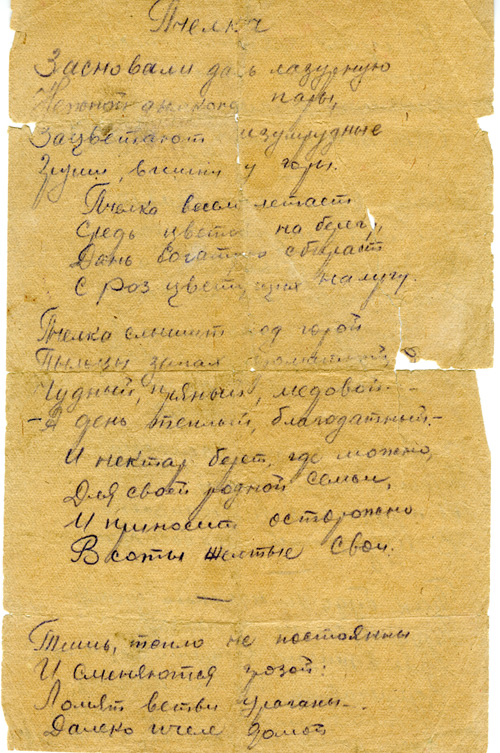 Пчелка
Засновали даль лазурную
пары,
Зацветают изумрудные
Груши, вишни у горы.
Пчелка весел летает
Средь цветов на берегу,
Дань богатую сбирает
С роз цветущих на лугу.
Пчелка слышит под горой
Пыльцы запах
Чудный, пряный, медовой.-
-А день теплый, благодатный.-
И нектар берет, где можно,
Для своей родной семьи,
И приносит осторожно
В соты желтые свои.
—
Тишь, тепло не постоянны
И сменяются грозой:
Ломят ветви ураганы.
Далеко пчеле домой